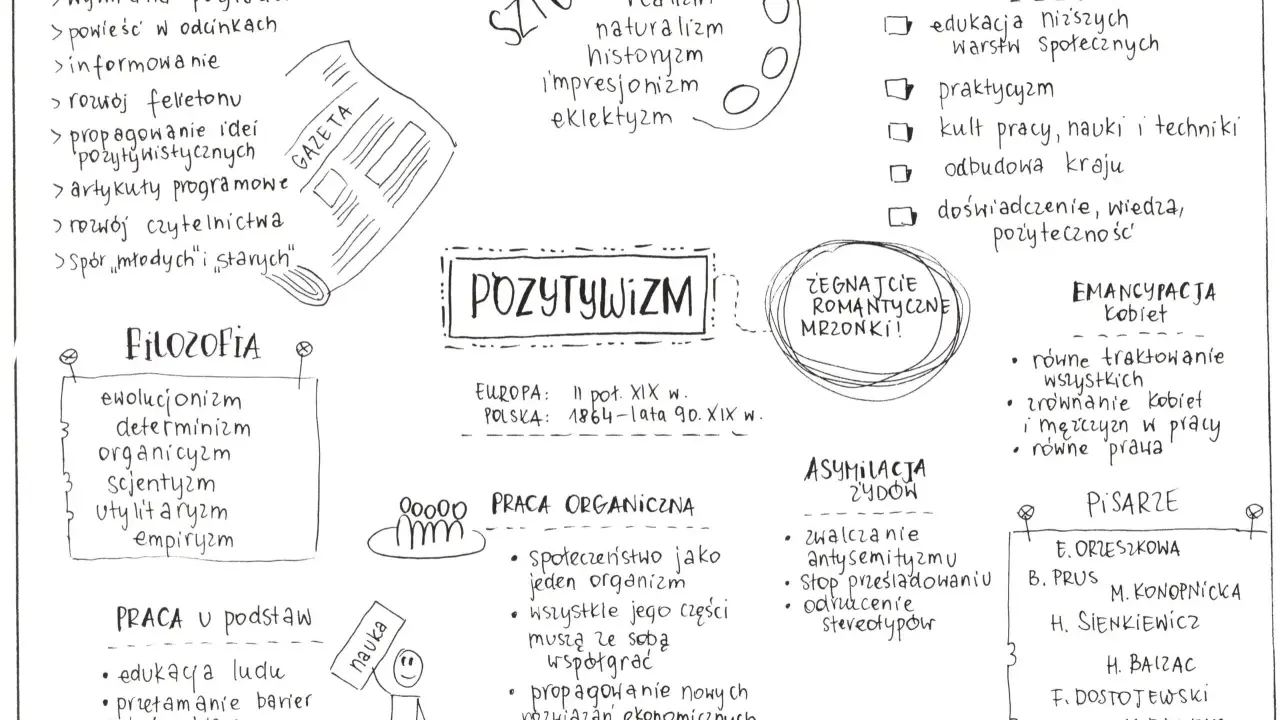 > powieść w odcinkach
> informowanie
> rozwój felietonu
> propagowanie idei
pozytywistycznych
> artykuły programowe
> rozwój czytelnictwa
> spór „młodych" i „starych"
GAZETA
naturalizm
historyzm
impresjonizm
eklektyzm
edukacja niższych
warstw społecznych
praktycyzm
kult pracy, nauki i techniki
odbudowa kraju
doświadczenie, wiedza,
pożyteczność
POZYTYWIZM
ŻEGNAJCIE
ROMANTYCZNE
MRZONKI!
EUROPA: II poł. XIX w.
POLSKA: 1864-lata 90. XIX w.
FILOZOFIA
ewolucjonizm
determinizm
organicyzm
scjentyzm
utylitaryzm
empiryzm
EMANCYPACJA
kobiet
• równe traktowanie
wszystkich
• zrównanie kobiet
i mężczyzn w pracy
• równe prawa
PRACA ORGANICZNA
• społeczeństwo jako
jeden organizm
• wszystkie jego części
muszą ze sobą
współgrać
• propagowanie nowych
rozwiązań ekonomicznych
ASYMILACJA
ŻYDÓW
• zwalczanie
antysemityzmu
• stop prześladowaniu
• odrzucenie
stereotypów
PISARZE
E. ORZESZKOWA
B. PRUS
M. KONOPNICKA
H. SIENKIEWICZ
H. BALZAC
F. DOSTOJEWSKI
PRACA U podstaw
• edukacja ludu
• przełamanie barier
nauka